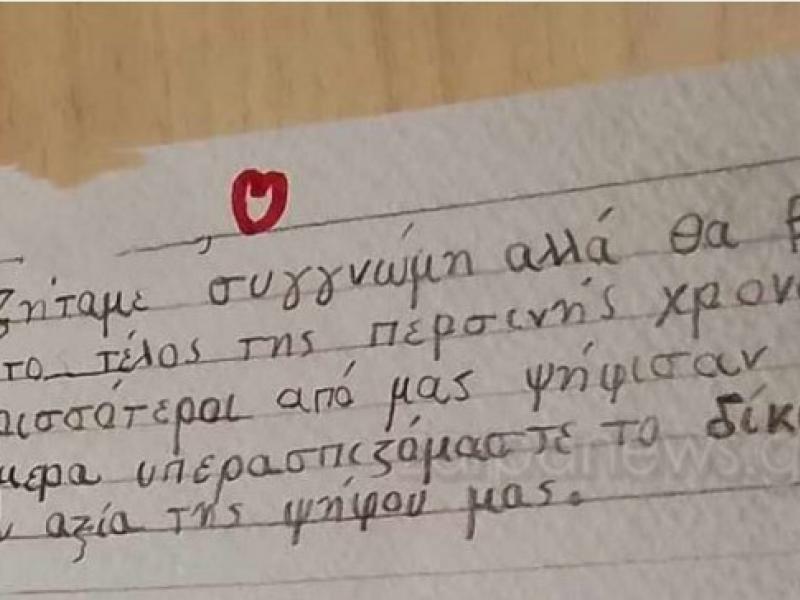 ζητάμε συγγνώμη αλλά θα
το τέλος της περσινής χρον
ισσότεροι από μας ψήφισαν
μερα υπερασπιζόμαστε το δίκ
αξία της ψήφου μας.